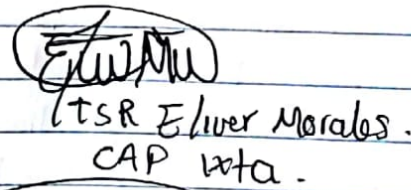 TSR Eliver Morales.
CAP Ixta.